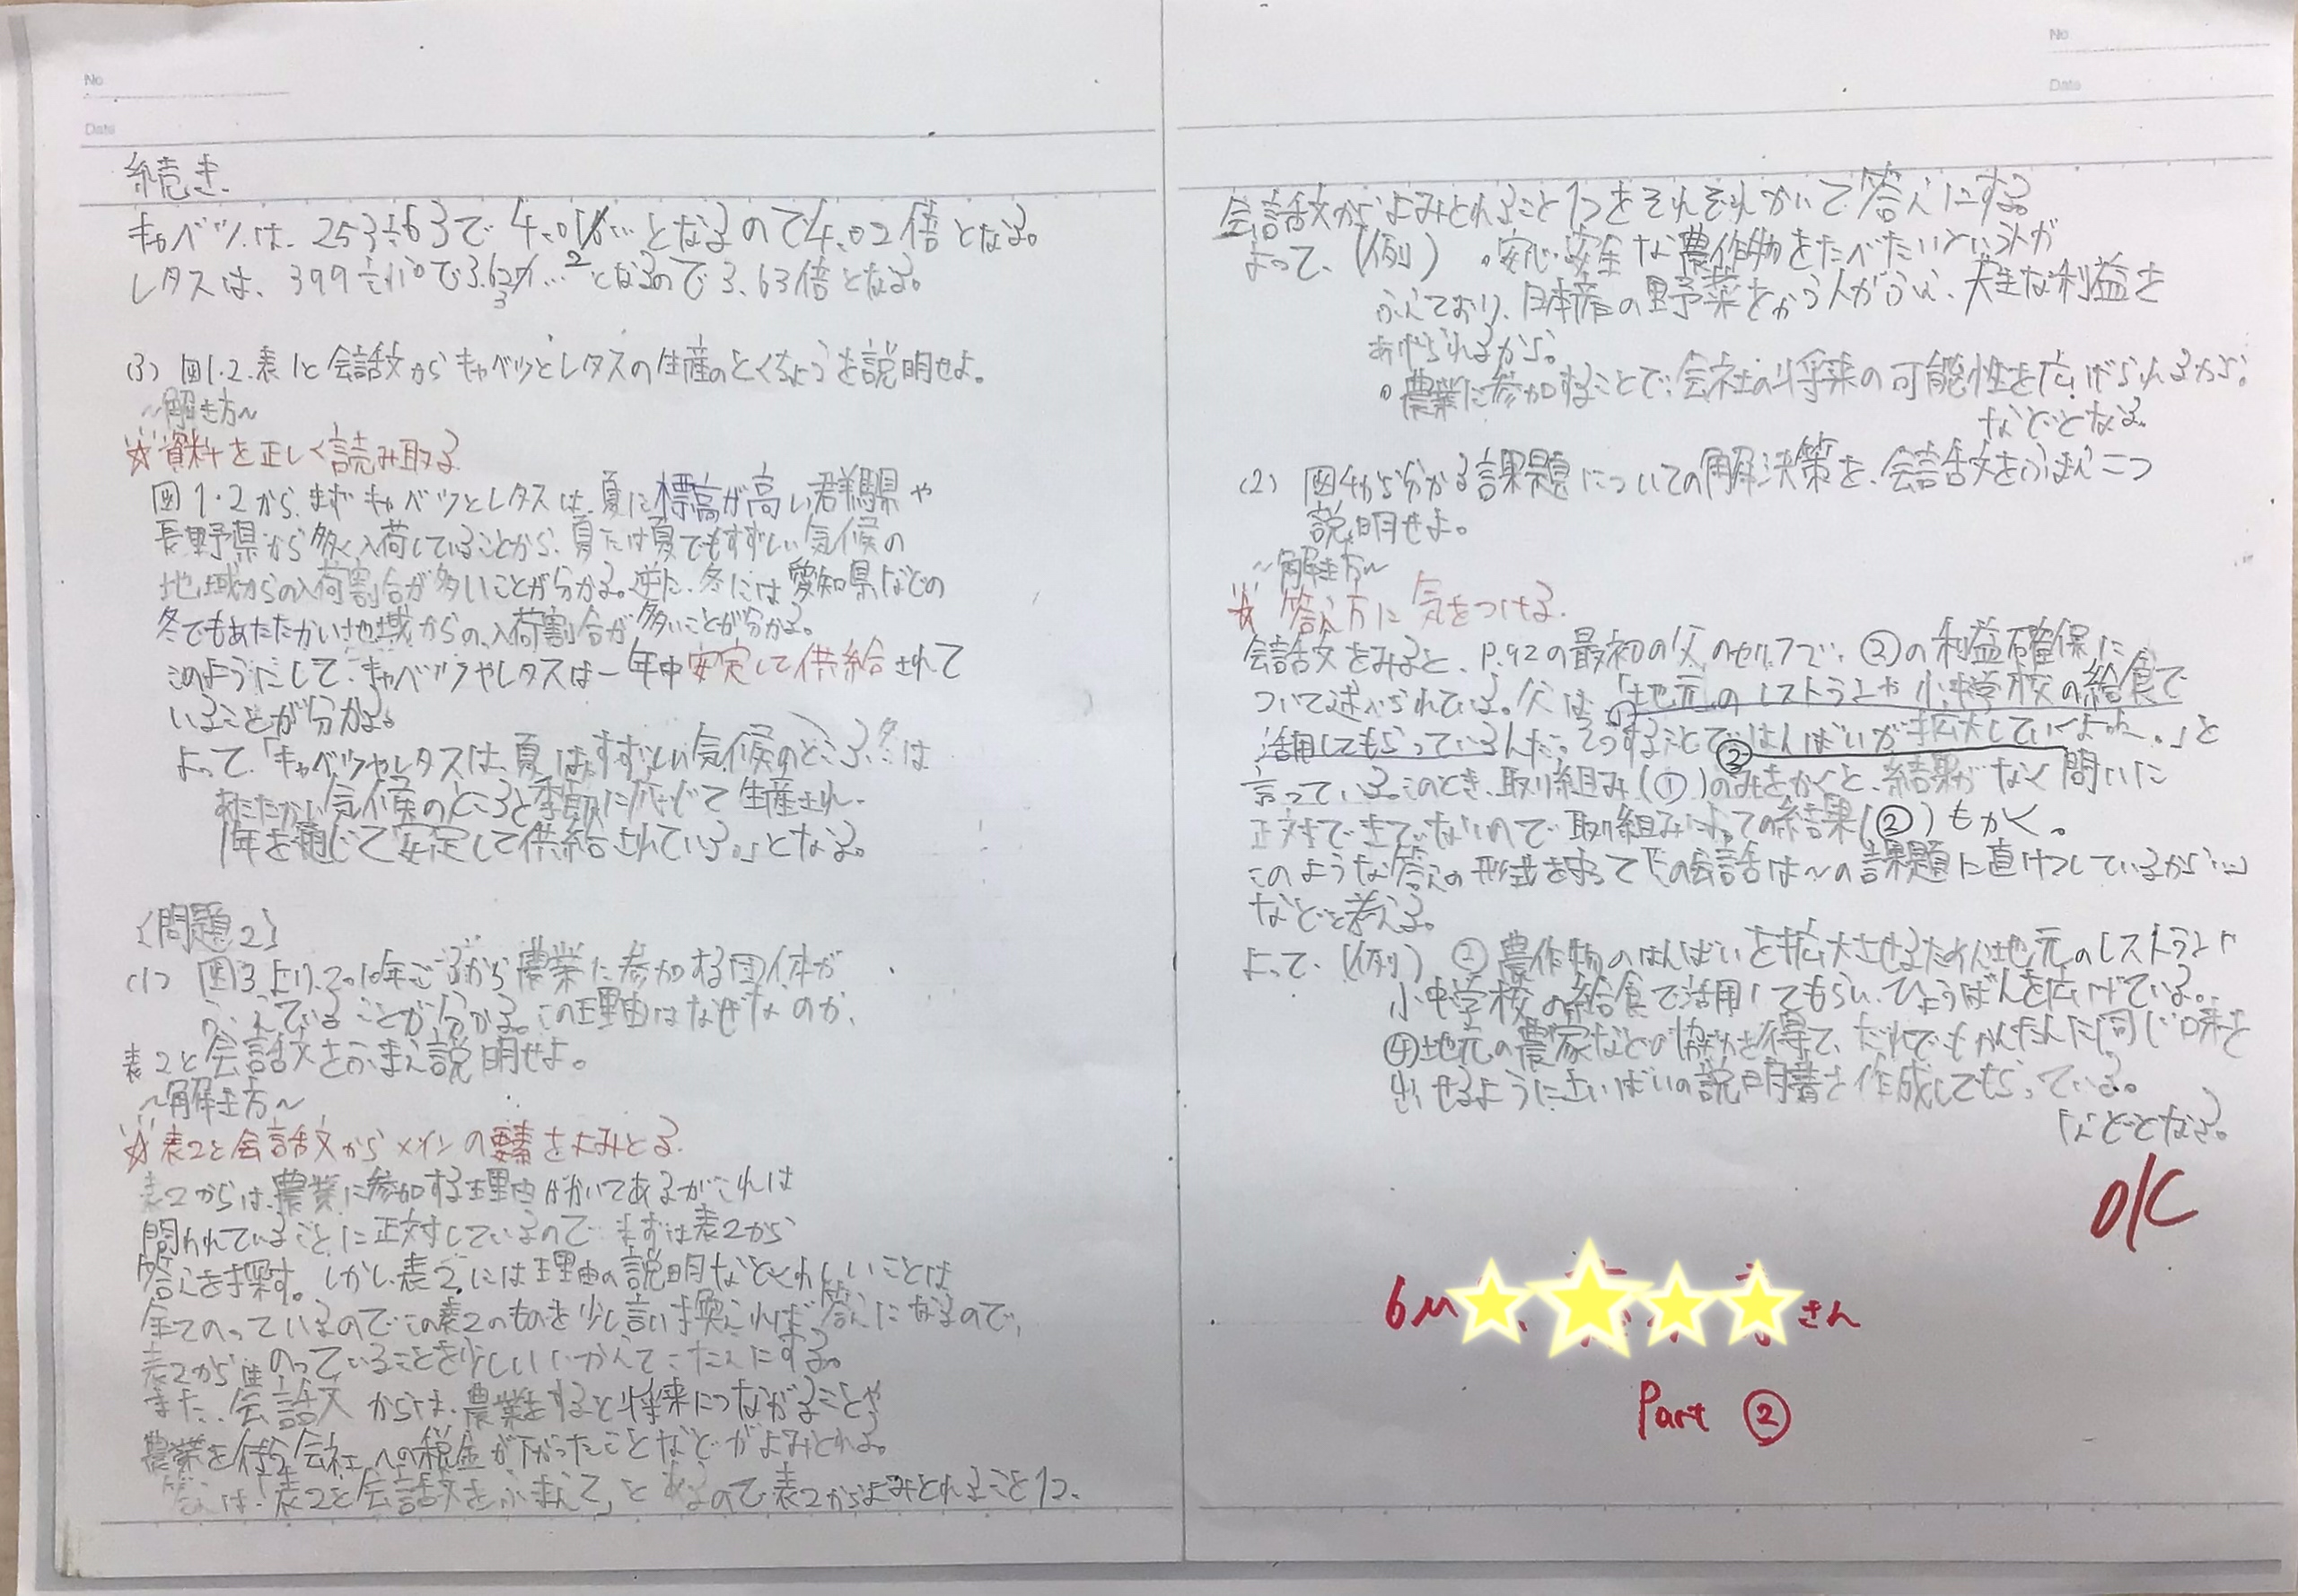 No
Date
続き
キャベツは、253÷63で4.016…となるので4.02倍となる。
レタスは、399÷110で3.627…となるので3.63倍となる。
(3) 図1.2.表1と会話文からキャベツとレタスの生産のとくちょうを説明せよ。
~解き方~
☆資料を正しく読み取る
図1・2から、まずキャベツとレタスは、夏に標高が高い群馬県や
長野県から多く入荷していることから、夏には夏でもすずしい気候の
地域からの入荷割合が多いことが分かる。逆に、冬には愛知県などの
冬でもあたたかい地域からの入荷割合が多いことが分かる。
このようにして、キャベツやレタスは一年中安定して供給されて
いることが分かる。
よって、「キャベツやレタスは、夏はすずしい気候のところ、冬は
あたたかい気候のところと季節に応じて生産され、
1年を通じて安定して供給されている。」となる。
{問題2}
(1) 図3より、2010年ごろから農業に参加する団体が
ふえていることが分かる。この理由はなぜなのか、
表2と会話文をふまえ説明せよ。
~解き方~
☆表2と会話文からメインの要素をよみとる。
表2からは、農業に参加する理由がかいてあるがこれは
問われていることに正対しているので、まずは表2から
答えを探す。しかし、表2には理由の説明などくわしいことは
全てのっているので、この表2のものを少し言い換えれば答えになるので、
表2からはのっていることを少しいいかえてこたえにする。
また、会話文からは、農業をすると将来につながることや
農業を行う会社への税金が下がったことなどがよみとれる。
答えは「表2と会話文をふまえて」とあるので、表2からよみとれること1つ、
No
Date
会話文からよみとれること1つをそれぞれかいて答えにする。
よって、(例) 。安心・安全な農作物をたべたいという人が
ふえており、日本産の野菜をかう人がふえ、大きな利益を
あげられるから。
。農業に参加することで、会社の将来の可能性を広げられるから。
などとなる。
(2) 図4から分かる課題についての解決策を、会話文をふまえ二つ
説明せよ。
~解き方~
☆ 答え方に気をつける。
会話文をみると、P.92の最初の父のセリフで、②の利益確保に
ついて述べられている。父は「①地元のレストランや小中学校の給食で
活用してもらっているんだ。そうすることで②はんばいが拡大していくよね。」と
言っている。このとき、取り組み(①)のみをかくと、結果がなく問いに
正対できていないので、取り組みによっての結果(②)もかく。
このような答えの形式を守って「この会話は~の課題に直けつしているから…」
などと考える。
よって、(例) ②農作物のはんばいを拡大させるために地元のレストランや
小中学校の給食で活用してもらい、ひょうばんを広げている。
④地元の農家などの協力を得て、だれでもかんたんに同じ味を
出せるようにさいばいの説明書を作成してもらっている。
などとなる。
OK
さん
Part ②